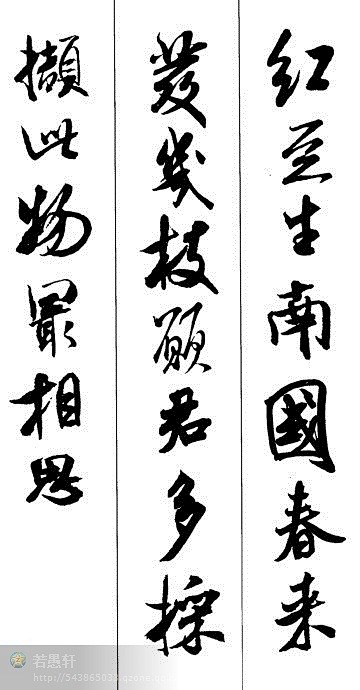 红豆生南國春来
發幾枝願君多採
擷此物最相思
若愚轩